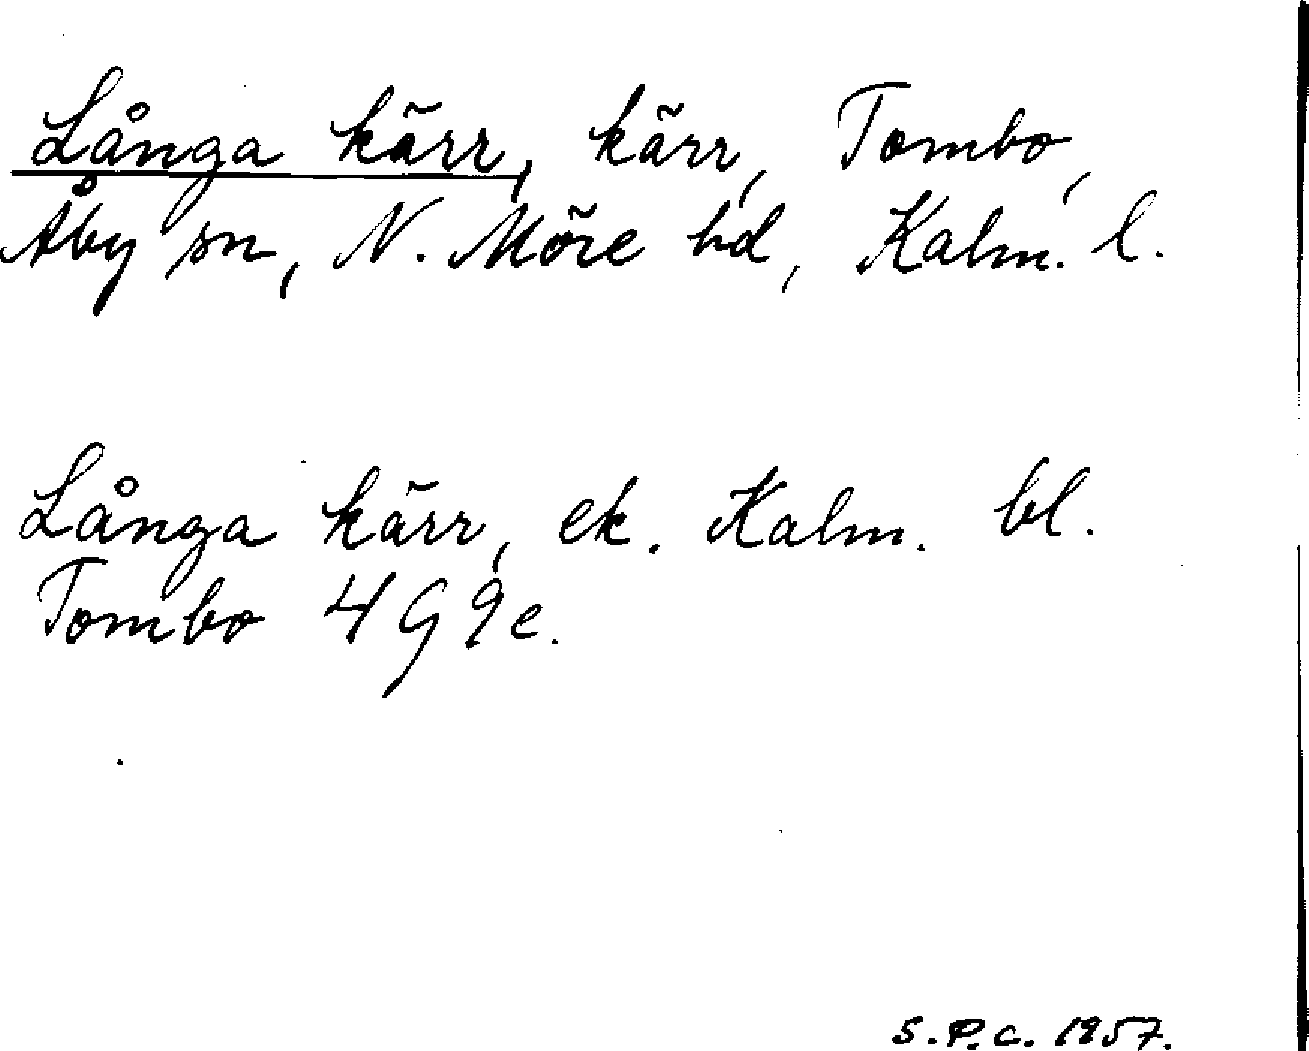 Långa kärr, kärr, Tombo,
Åby sn, N. Möre hd, Kalm. l.
Långa kärr, ek. Kalm. bl.
Tombo 4 G 9 e.
S.P.C. 1957.